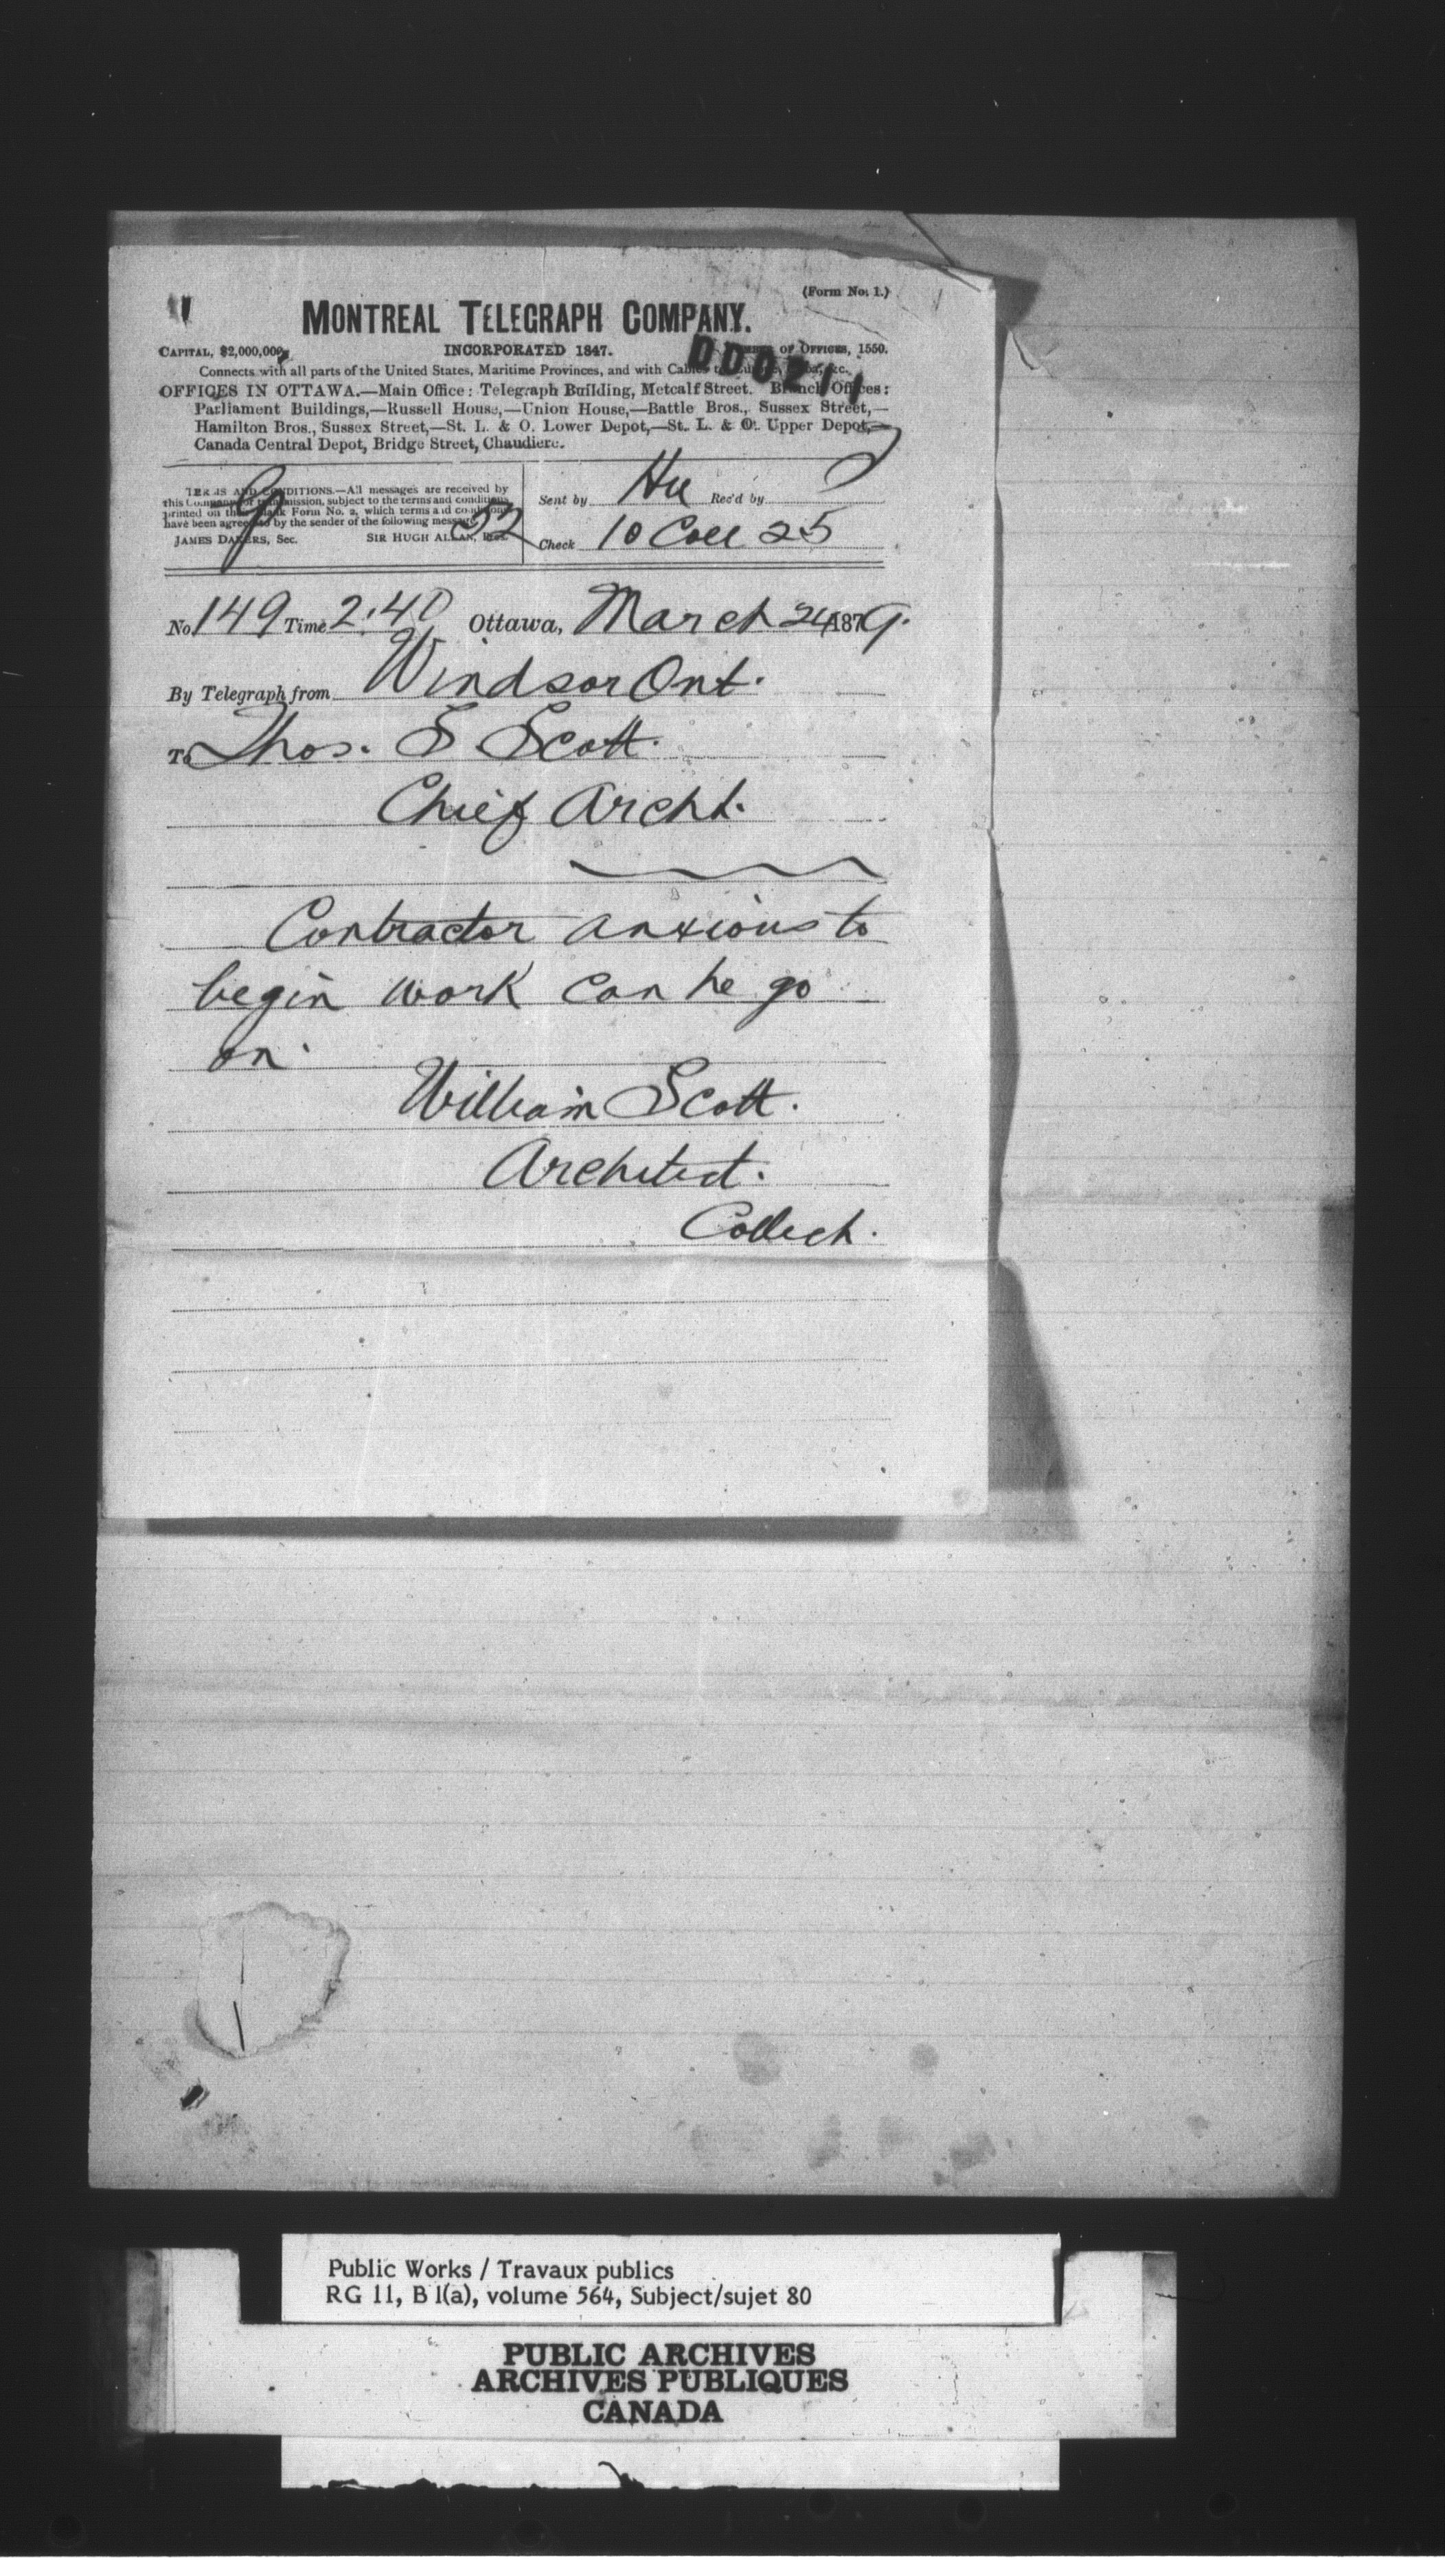 (Form No. 1.)
MONTREAL TELEGRAPH COMPANY.
CAPITAL, $2,000,000. INCORPORATED 1847. OF OFFICES, 1550.
Connects with all parts of the United States, Maritime Provinces, and with Cables to &c.
OFFICES IN OTTAWA.—Main Office: Telegraph Building, Metcalf Street. Branch Offices:
Parliament Buildings,—Russell House,—Union House,—Battle Bros., Sussex Street,—
Hamilton Bros., Sussex Street,—St. L. & O. Lower Depot,—St. L. & O. Upper Depot,—
Canada Central Depot, Bridge Street, Chaudiere.
TERMS AND CONDITIONS.—All messages are received by
this Company for transmission, subject to the terms and conditions
printed on their Blank Form No. 2, which terms and conditions
have been agreed to by the sender of the following message.
JAMES DAKERS, Sec. SIR HUGH ALLAN, Pres.
9 52
Sent by Hu Rec'd by
Check 10 Coll 25
No 149 Time 2.40 Ottawa, March 24 1879.
By Telegraph from Windsor Ont.
To Thos. S Scott.
Chief Archt.
Contractor anxious to
begin work can he go
on.
William Scott.
Architect.
Collect.
Public Works / Travaux publics
RG 11, B 1(a), volume 564, Subject/sujet 80
PUBLIC ARCHIVES
ARCHIVES PUBLIQUES
CANADA